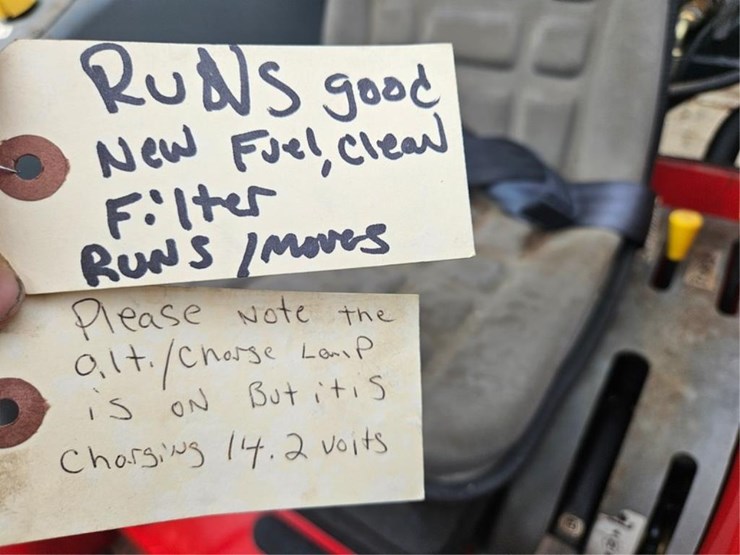 RUNS good
New Fuel, Clean
Filter
RUNS / Moves
Please Note the
alt./Charge Lamp
is ON But it is
Charging 14.2 volts